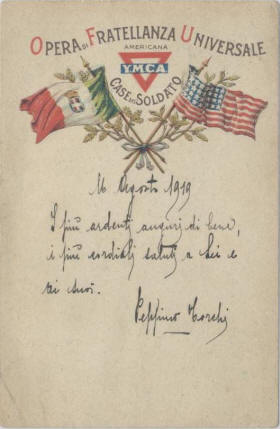 OPERA DI FRATELLANZA UNIVERSALE
AMERICANA
YMCA
CASE DEL SOLDATO
16 Agosto 1919
I più ardenti auguri di bene,
i più cordiali saluti a Lei e
ai suoi.
Peppino